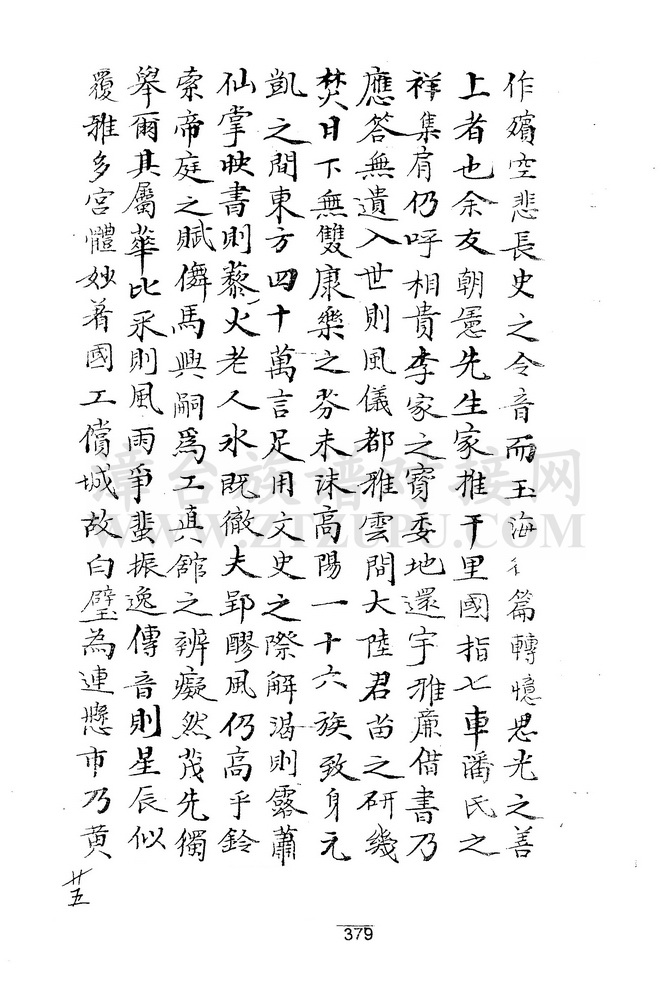 作殯空悲長史之令音而玉海千篇轉憶思光之善
上者也余友朝先生家推千里國指七車潘氏之
祥集肩仍呼相貴李家之寶委地還宇雅廉借書乃
應答無遺入世則風儀都雅雲間大陸君苗之研幾
焚日下無雙康樂之芬未沫高陽一十六族致身元
凱之間東方四十萬言足用文史之際解渴則露蕭
仙掌映書則藜火老人氷既徹夫郢醪風仍高乎鈴
索帝庭之賦儕馬與嗣爲工真館之辨癡然茂先獨
舉爾其屬華比采則風雨爭蜚振逸傳音則星辰似
覆雅多宮體妙著國工償城故白璧為連懸市乃黄
廿五
379
漳台族譜對接网
WWW.ZTZUPU.COM